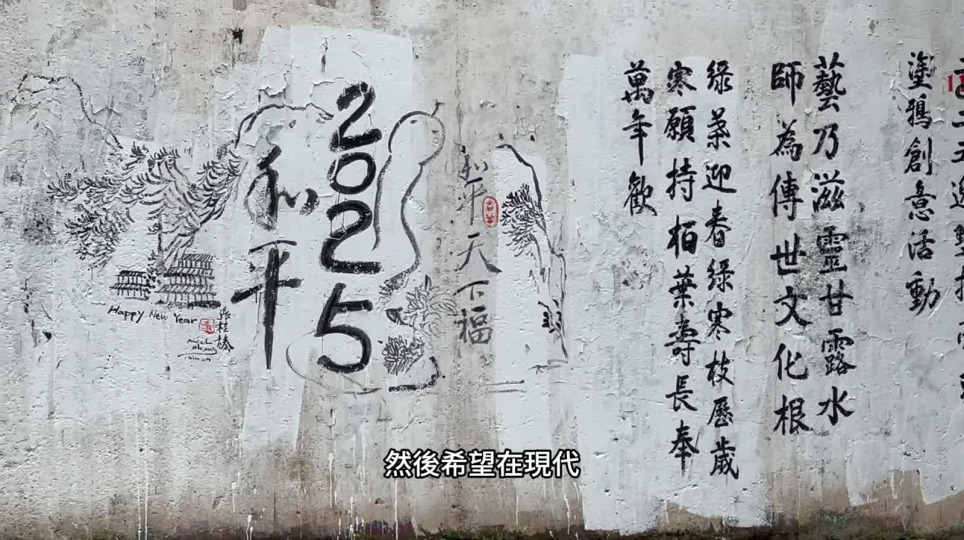 塗鴉創意活動
藝乃滋靈甘露水
師為傳世文化根
綠葉迎春綠寒枝歷歲
寒願持栢葉壽長奉
萬年歡
和平天下福
2025
和平
Happy New Year
然後希望在現代